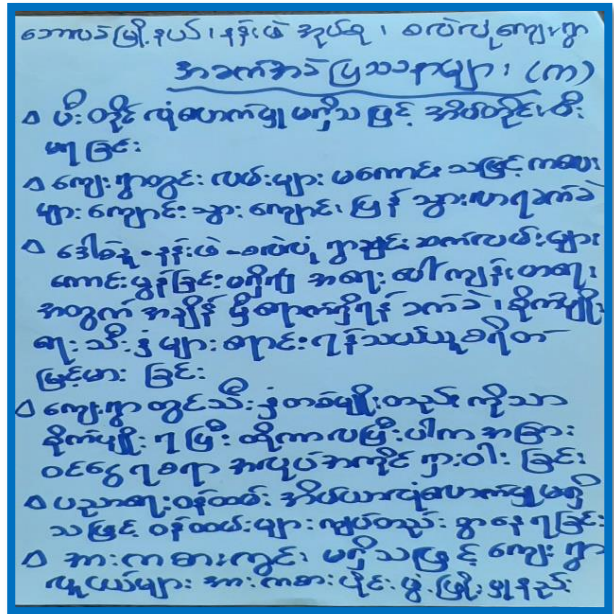 ဘောလခဲမြို့နယ်၊ နန်းဖဲ အုပ်စု၊ စလဲလုံကျေးရွာ
အခက်အခဲ ပြဿနာများ (က)
မီးတိုင် လုံလောက်မှု မရှိသဖြင့် အိမ်တိုင်းမီး
မရခြင်း
ကျေးရွာတွင်း လမ်းများ မကောင်းသဖြင့် ကလေး
များ ကျောင်းသွား ကျောင်းပြန် သွားလာရခက်ခဲ
နန်းဖဲ - စလဲလုံ ရွာချင်းဆက်လမ်းများ
ကောင်းမွန်ခြင်း မရှိ၍ အရေးပေါ်ကျန်းမာရေး
အတွက် အချိန်မှီရောက်ရှိရန် ခက်ခဲ၊ စိုက်ပျိုး
ရေးသီးနှံများ ရောင်းရန်သယ်ယူစရိတ်
မြင့်မားခြင်း
ကျေးရွာတွင် သီးနှံတစ်မျိုးတည်းကိုသာ
စိုက်ပျိုးရပြီး ထိုကာလပြီးပါက အခြား
ဝင်ငွေရစရာ အလုပ်အကိုင် ရှားပါးခြင်း
ပညာရေးဝန်ထမ်း အိမ်ယာလုံလောက်မှုမရှိ
သဖြင့် ဝန်ထမ်းများ ကျပ်တည်းစွာနေရခြင်း
အားကစားကွင်း မရှိသဖြင့် ကျေးရွာ
လူငယ်များ အားကစားပိုင်း ဖွံ့ဖြိုးမှုနည်း